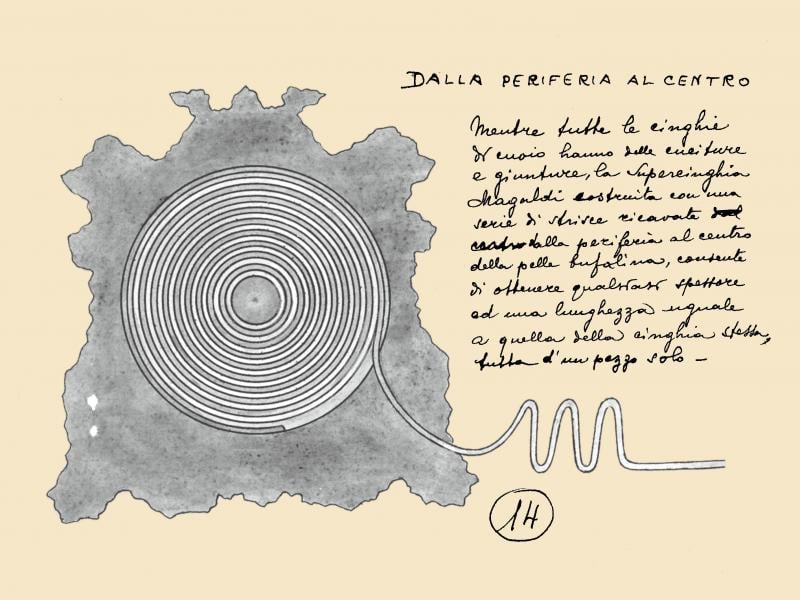 DALLA PERIFERIA AL CENTRO
Mentre tutte le cinghie
di cuoio hanno delle cuciture
e giunture, la Supercinghia
Magaldi costruita con una
serie di strisce ricavate
dalla periferia al centro
della pelle bufalina, consente
di ottenere qualsiasi spessore
ed una lunghezza uguale
a quella della cinghia stessa,
tutta d'un pezzo solo —
14